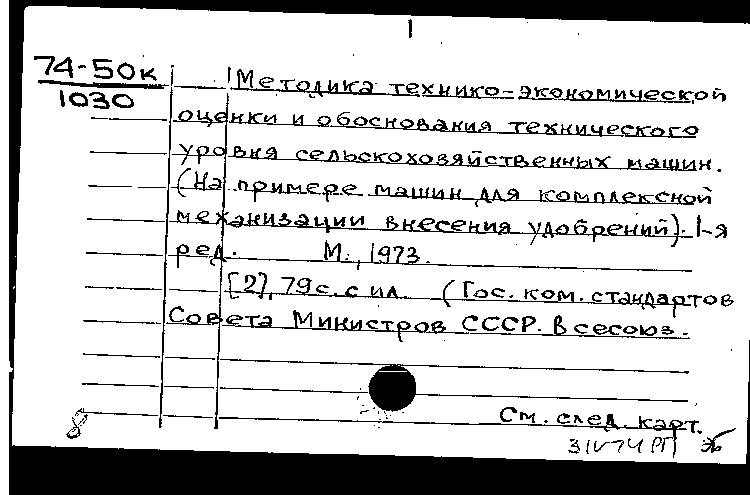 74-50к
1030
Методика технико-экономической
оценки и обоснования технического
уровня сельскохозяйственных машин.
(На примере машин для комплексной
механизации внесения удобрений). 1-я
ред. М., 1973.
[2], 79 с. с ил. (Гос. ком. стандартов
Совета Министров СССР. Всесоюз.
См. след. карт.
3 IV 74
8